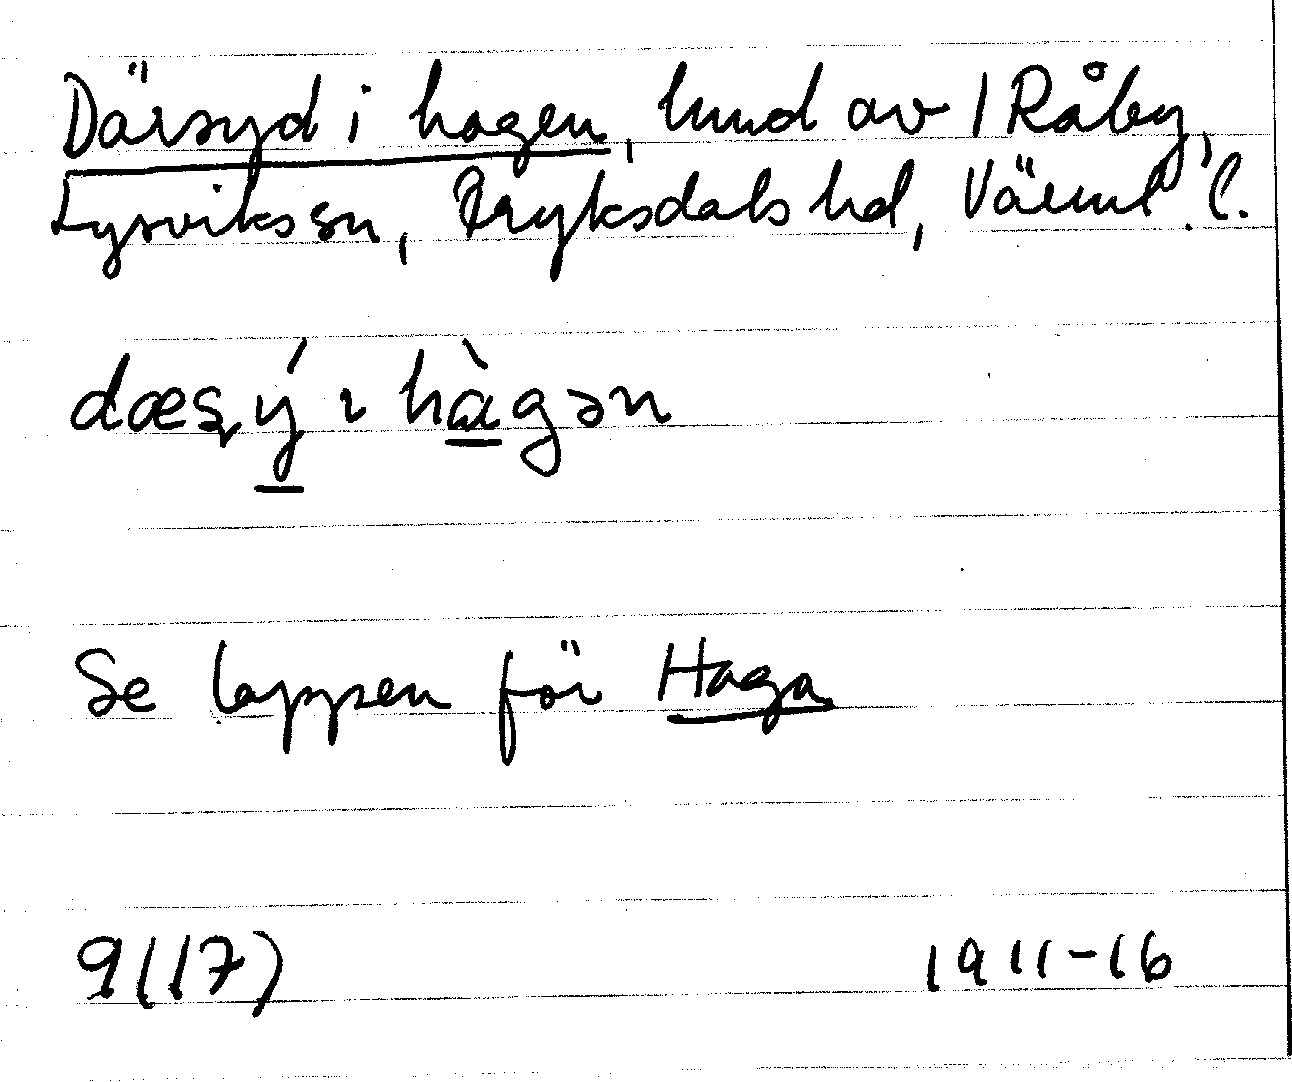 Därsyd i hagen, hmd av 1 Råby,
Lysviks sn, Fryksdals hd, Värml. l.
dæʂý ɩ hàgən
Se lappen för Haga
9(17) 1911-16